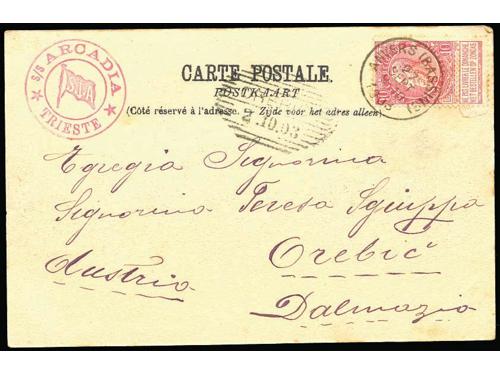 S/S ARCADIA
SIA
TRIESTE
CARTE POSTALE.
POSTKAART
(Côté réservé à l'adresse. — Zijde voor het adres alleen)
ANVERS (BASSINS)
2.10.03
10
Egregia Signorina
Signorina Teresa Sguippa
Orebić
Austria
Dalmazia